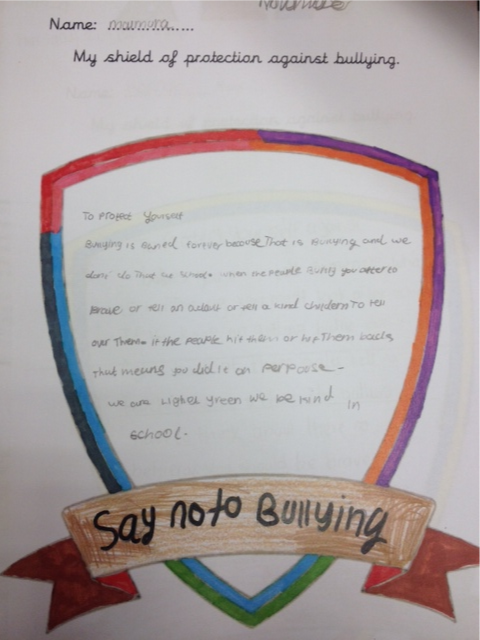 November
Name: maimuna
My shield of protection against bullying.
To Protect Yourself
Bullying is Baned forever because That is Bullying and we
dont do That in School. when the People Bully you after to
Brave or tell an adult or tell a kind children To tell
over Them. if the People hit them or hit Them backs
That means you did it on perpoase.
we are Lighes green we be kind in
SCHOOL.
Say no to Bullying